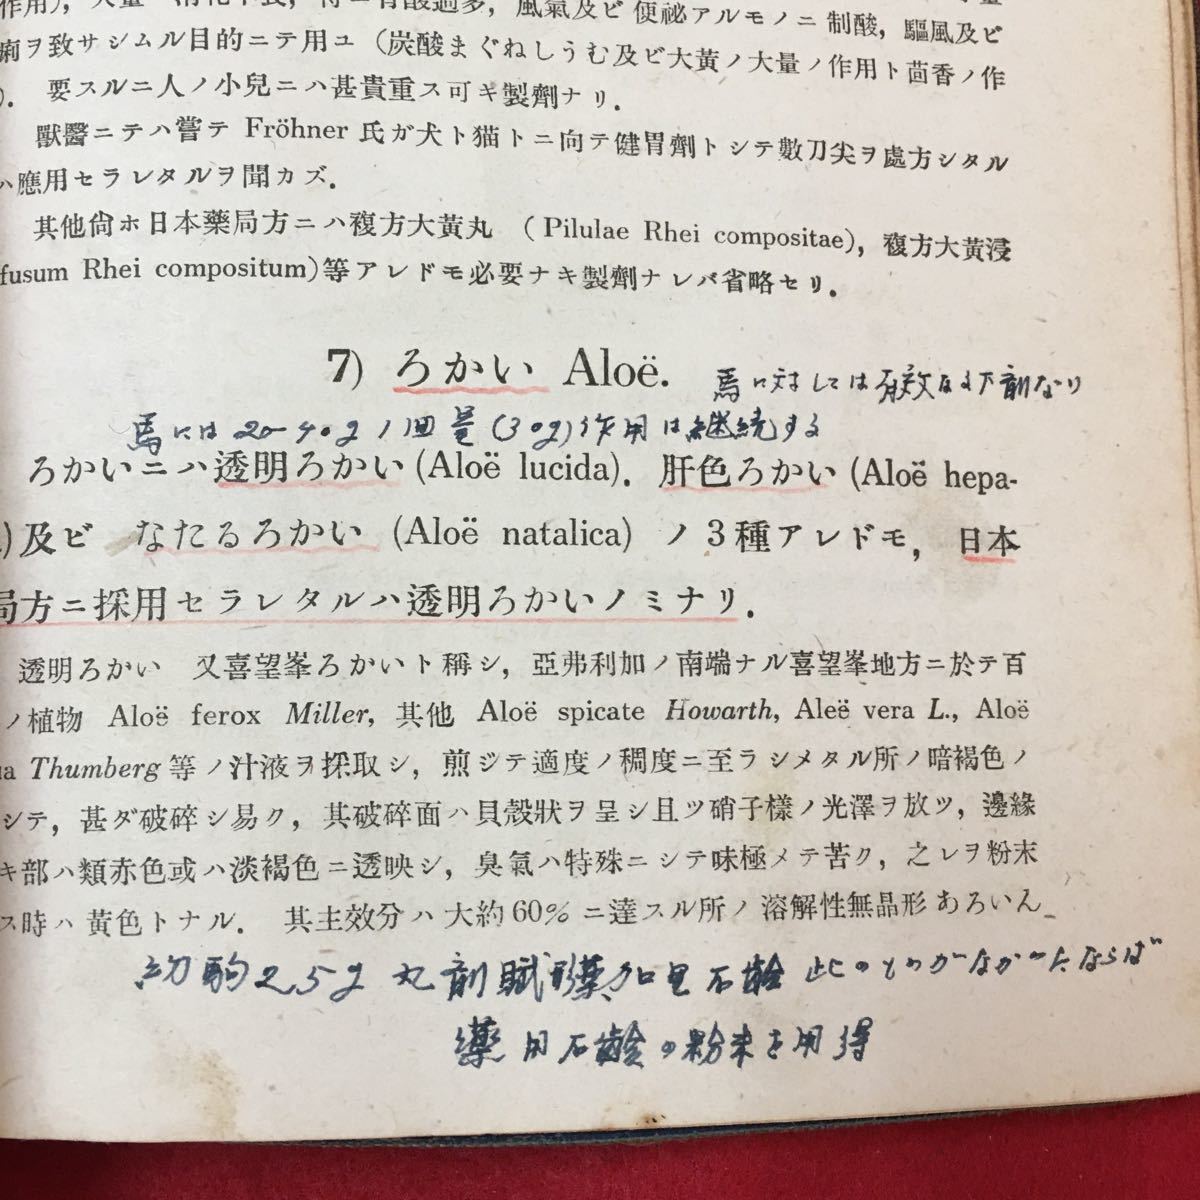 風氣及ビ便祕アルモノニ制酸,驅風及ビ
痢ヲ致サシムル目的ニテ用ユ(炭酸まぐねしうむ及ビ大黃ノ大量ノ作用ト茴香ノ作
). 要スルニ人ノ小兒ニハ甚貴重ス可キ製劑ナリ.
獸醫ニテハ嘗テ Fröhner 氏ガ犬ト猫トニ向テ健胃劑トシテ數刀尖ヲ處方シタル
ハ應用セラレタルヲ聞カズ.
其他尙ホ日本藥局方ニハ複方大黃丸 (Pilulae Rhei compositae), 複方大黃浸
fusum Rhei compositum)等アレドモ必要ナキ製劑ナレバ省略セリ.
7) ろかい Aloë. 馬に対しては有効なる下剤なり
馬には20-40g 1回量(30g)作用は継続する
ろかいニハ透明ろかい(Aloë lucida). 肝色ろかい(Aloë hepa-
)及ビ なたるろかい (Aloë natalica) ノ3種アレドモ, 日本
局方ニ採用セラレタルハ透明ろかいノミナリ.
透明ろかい 又喜望峯ろかいト稱シ, 亞弗利加ノ南端ナル喜望峯地方ニ於テ百
ノ植物 Aloë ferox Miller, 其他 Aloë spicate Howarth, Aleë vera L., Aloë
a Thumberg 等ノ汁液ヲ採取シ, 煎ジテ適度ノ稠度ニ至ラシメタル所ノ暗褐色ノ
シテ, 甚ダ破碎シ易ク, 其破碎面ハ貝殼狀ヲ呈シ且ツ硝子樣ノ光澤ヲ放ツ, 邊緣
キ部ハ類赤色或ハ淡褐色ニ透映シ, 臭氣ハ特殊ニシテ味極メテ苦ク, 之レヲ粉末
ス時ハ黃色トナル. 其主效分ハ大約60%ニ達スル所ノ溶解性無晶形あろいん
幼駒25g 丸剤賦形藥、加里石鹸 此のものがなかったならば
藥用石鹸の粉末を用得